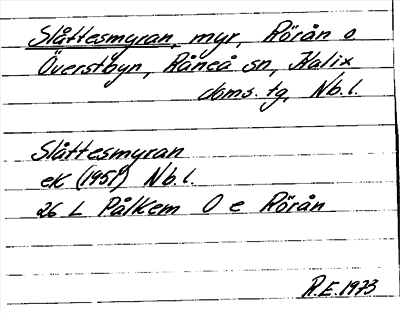 Slåttesmyran, myr, Rörån o.
Överstbyn, Råneå sn, Kalix
doms. tg, Nb.l.
Slåttesmyran
ek (1951) Nb.l.
26 L Pålkem O e Rörån
R.E. 1973